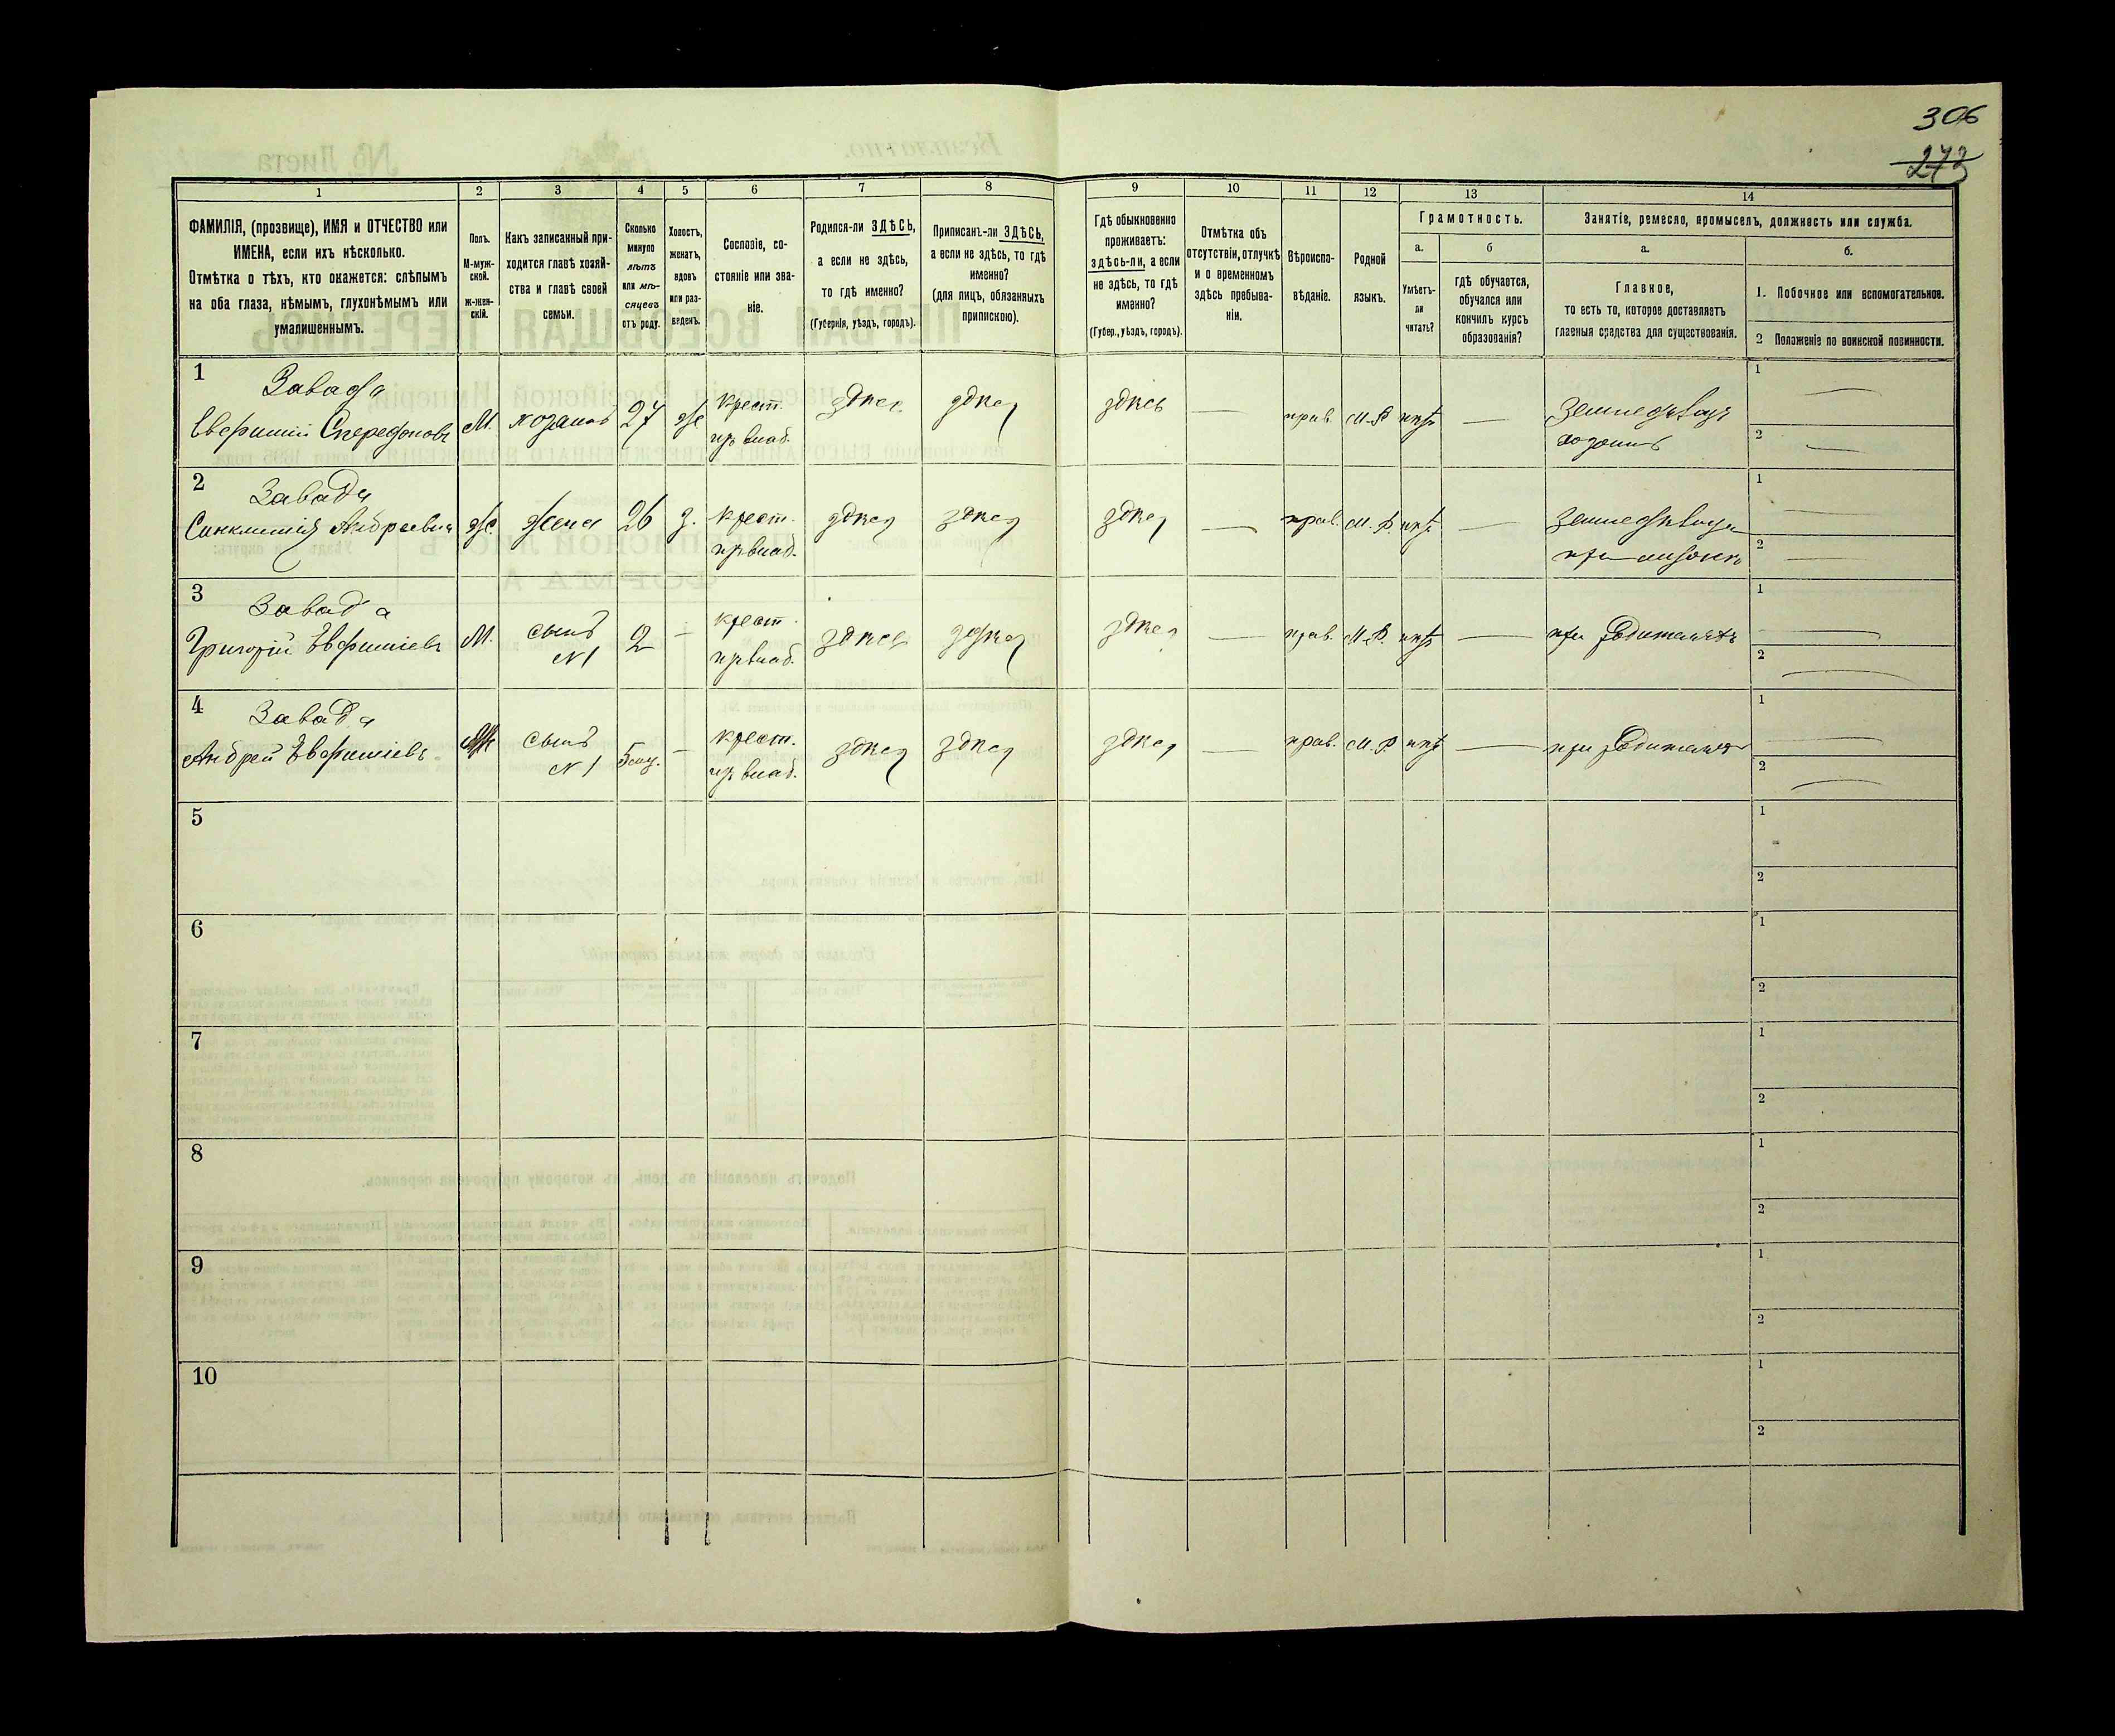 306
273
1
2
3
4
5
6
7
8
9
10
11
12
13
14
ФАМИЛІЯ, (прозвище), ИМЯ и ОТЧЕСТВО или
ИМЕНА, если ихъ нѣсколько.
Отмѣтка о тѣхъ, кто окажется: слѣпымъ
на оба глаза, нѣмымъ, глухонѣмымъ или
умалишеннымъ.
Полъ.
М-муж-
ской.
ж-жен-
скій.
Какъ записанный при-
ходится главѣ хозяй-
ства и главѣ своей
семьи.
Сколько
минуло
лѣтъ
или мѣ-
сяцевъ
отъ роду.
Холостъ,
женатъ,
вдовъ
или раз-
веденъ.
Сословіе, со-
стояніе или зва-
ніе.
Родился-ли ЗДѢСЬ,
а если не здѣсь,
то гдѣ именно?
(Губернія, уѣздъ, городъ).
Приписанъ-ли ЗДѢСЬ,
а если не здѣсь, то гдѣ
именно?
(для лицъ, обязанныхъ
припискою).
Гдѣ обыкновенно
проживаетъ:
здѣсь-ли, а если
не здѣсь, то гдѣ
именно?
(Губер., уѣздъ, городъ).
Отмѣтка объ
отсутствіи, отлучкѣ
и о временномъ
здѣсь пребыва-
ніи.
Вѣроиспо-
вѣданіе.
Родной
языкъ.
Грамотность.
а.
б
Умѣетъ-
ли
читать?
гдѣ обучается,
обучался или
кончилъ курсъ
образованія?
Занятіе, ремесло, промыселъ, должность или служба.
а.
б.
Главное,
то есть то, которое доставляетъ
главныя средства для существованія.
1. Побочное или вспомогательное.
2 Положеніе по воинской повинности.
1
Завада
Евфимій Спередоновъ
М.
хозяинъ
27
ж
крест.
изъ влад.
здѣсь
здѣсь
здѣсь
—
прав.
М.Р
нѣтъ
—
Земледѣлецъ
хозяинъ
1
—
2
—
2
Завада
Синклитія Андреевна
ж.
жена
26
з.
крест.
изъ влад.
здѣсь
здѣсь
здѣсь
—
прав.
М.Р.
нѣтъ
—
1
—
2
—
3
Завада
Григорій Евфиміевъ
М.
сынъ
N 1
2
—
крест.
изъ влад.
здѣсь
здѣсь
здѣсь
—
прав.
М.Р.
нѣтъ
—
при родителяхъ
1
—
2
—
4
Завада
Андрей Евфиміевъ
сынъ
N 1
5 мѣц.
—
крест.
изъ влад.
здѣсь
здѣсь
здѣсь
—
прав.
М.Р
нѣтъ
—
при родителяхъ
1
—
2
—
5
1
2
6
1
2
7
1
2
8
1
2
9
1
2
10
1
2